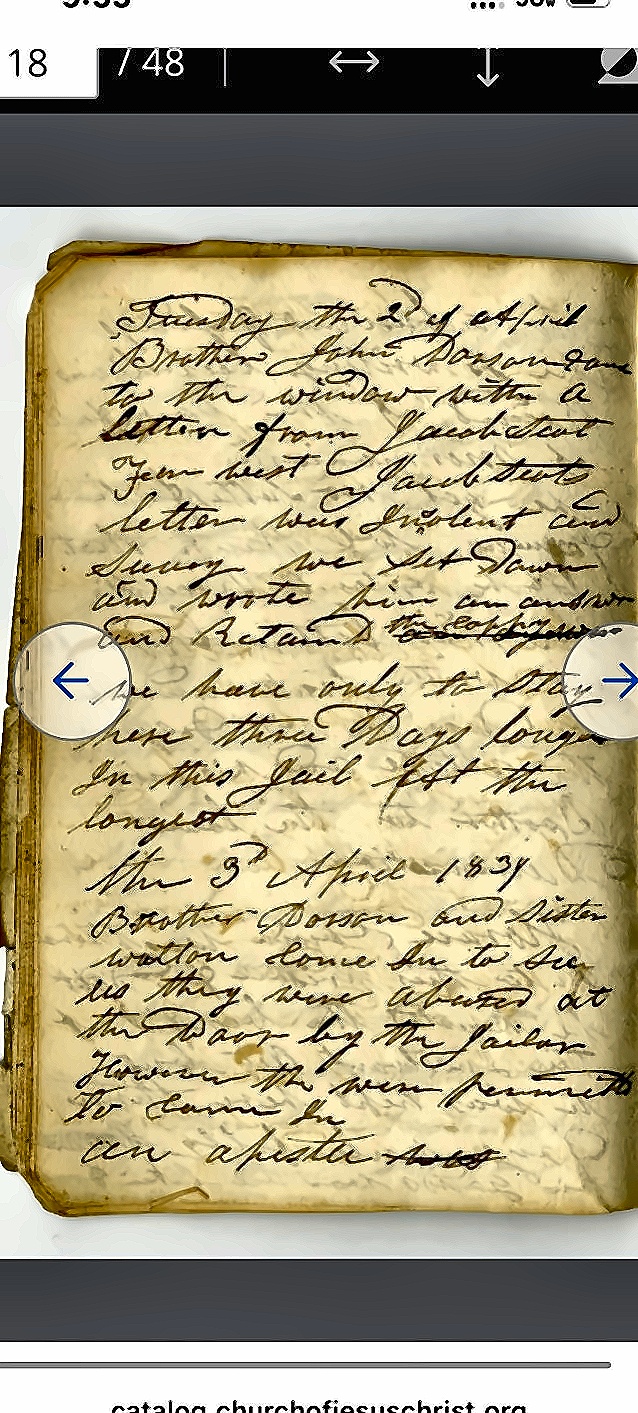 18 / 48
Tuesday the 2d of April
Brother John Dorson Came
to the window with a
letter from Jacob Scot
Fem west Jacob Scots
letter was Insolent and
Sausy we set Down
and wrote him an answer
and Retaind the Coppy
we have only to Stay
here three Days longer
In this Jail att the
longest
the 3d April 1839
Brother Dorson and Sister
walton Come In to See
us they were abused at
the Door by the Jailor
However the were permitted
to Come In
an apistle was
catalog.churchofjesuschrist.org